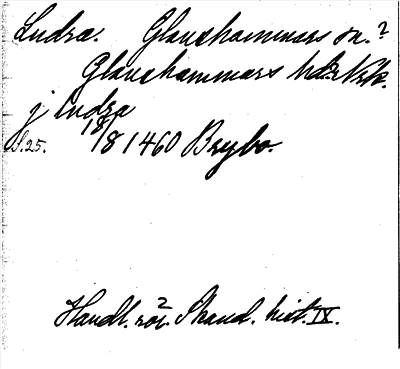 Ludra. Glanshammars sn.?
Glanshammars hd Nrk.
j ludra
S. 25. 18/8 1460 Brybo.
Handl. rör. Skand. hist. IX.